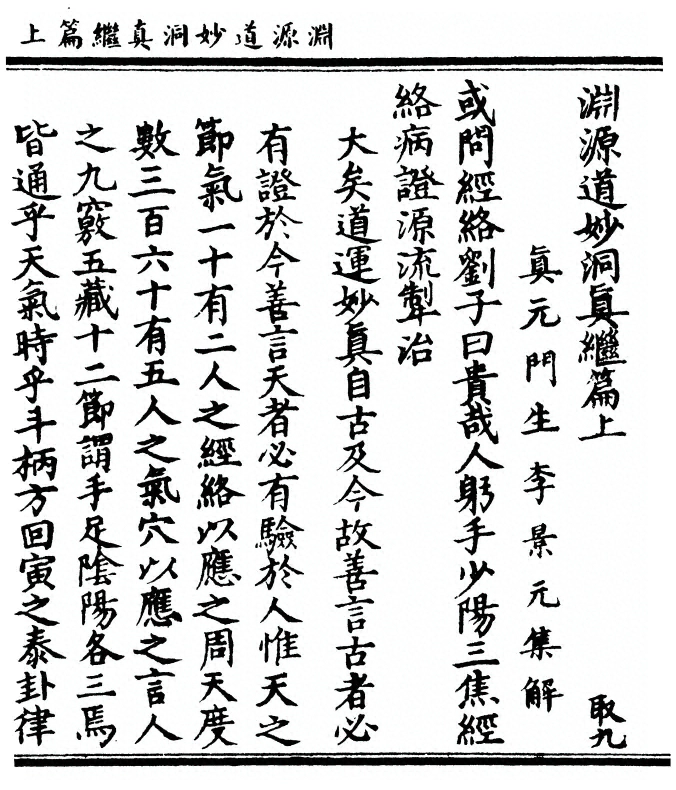 淵源道妙洞真繼篇上
淵源道妙洞真繼篇上 取九
真元門生李景元集解
或問經絡劉子曰貴哉人躬手少陽三焦經
絡病證源流掣治
大矣道運妙真自古及今故善言古者必
有證於今善言天者必有驗於人惟天之
節氣一十有二人之經絡以應之周天度
數三百六十有五人之氣穴以應之言人
之九竅五藏十二節謂手足陰陽各三焉
皆通乎天氣時乎斗柄方回寅之泰卦律